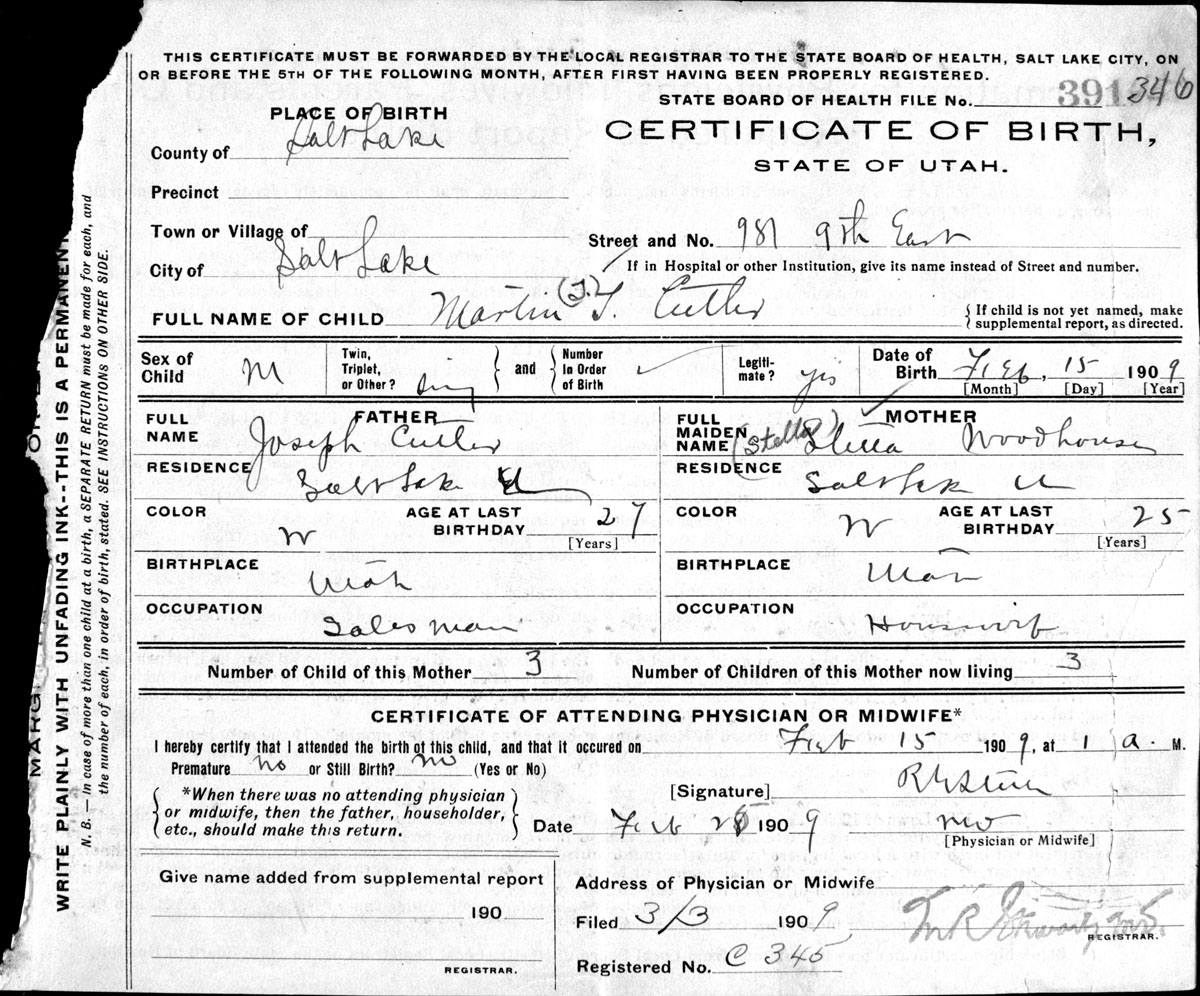 THIS CERTIFICATE MUST BE FORWARDED BY THE LOCAL REGISTRAR TO THE STATE BOARD OF HEALTH, SALT LAKE CITY, ON
OR BEFORE THE 5TH OF THE FOLLOWING MONTH, AFTER FIRST HAVING BEEN PROPERLY REGISTERED.
STATE BOARD OF HEALTH FILE No. 391 346
PLACE OF BIRTH
CERTIFICATE OF BIRTH,
STATE OF UTAH.
County of Salt Lake
Precinct
Town or Village of
Street and No. 981 9th East
City of Salt Lake
If in Hospital or other Institution, give its name instead of Street and number.
FULL NAME OF CHILD Martin (T.) T. Cutler
If child is not yet named, make
supplemental report, as directed.
Sex of Child M
Twin, Triplet, or Other? sing
and
Number In Order of Birth
Legiti-mate? yes
Date of Birth Feb, 15 1909
[Month] [Day] [Year]
FATHER
FULL NAME Joseph Cutler
RESIDENCE Salt Lake
COLOR W
AGE AT LAST BIRTHDAY 27
[Years]
BIRTHPLACE Utah
OCCUPATION Salesman
MOTHER
FULL MAIDEN NAME (Stella) Woodhouse
RESIDENCE Salt Lake
COLOR W
AGE AT LAST BIRTHDAY 25
[Years]
BIRTHPLACE Utah
OCCUPATION Housewife
Number of Child of this Mother 3
Number of Children of this Mother now living 3
CERTIFICATE OF ATTENDING PHYSICIAN OR MIDWIFE*
I hereby certify that I attended the birth of this child, and that it occured on Feb 15 1909, at 1 a. M.
Premature no or Still Birth? no (Yes or No)
[Signature]
*When there was no attending physician
or midwife, then the father, householder,
etc., should make this return.
Date Feb 1909
MD
[Physician or Midwife]
Give name added from supplemental report
190
REGISTRAR.
Address of Physician or Midwife
Filed 3/3 1909
REGISTRAR.
Registered No. C 345
WRITE PLAINLY WITH UNFADING INK--THIS IS A PERMANENT
N. B. — In case of more than one child at a birth, a SEPARATE RETURN must be made for each, and
the number of each, in order of birth, stated. SEE INSTRUCTIONS ON OTHER SIDE.